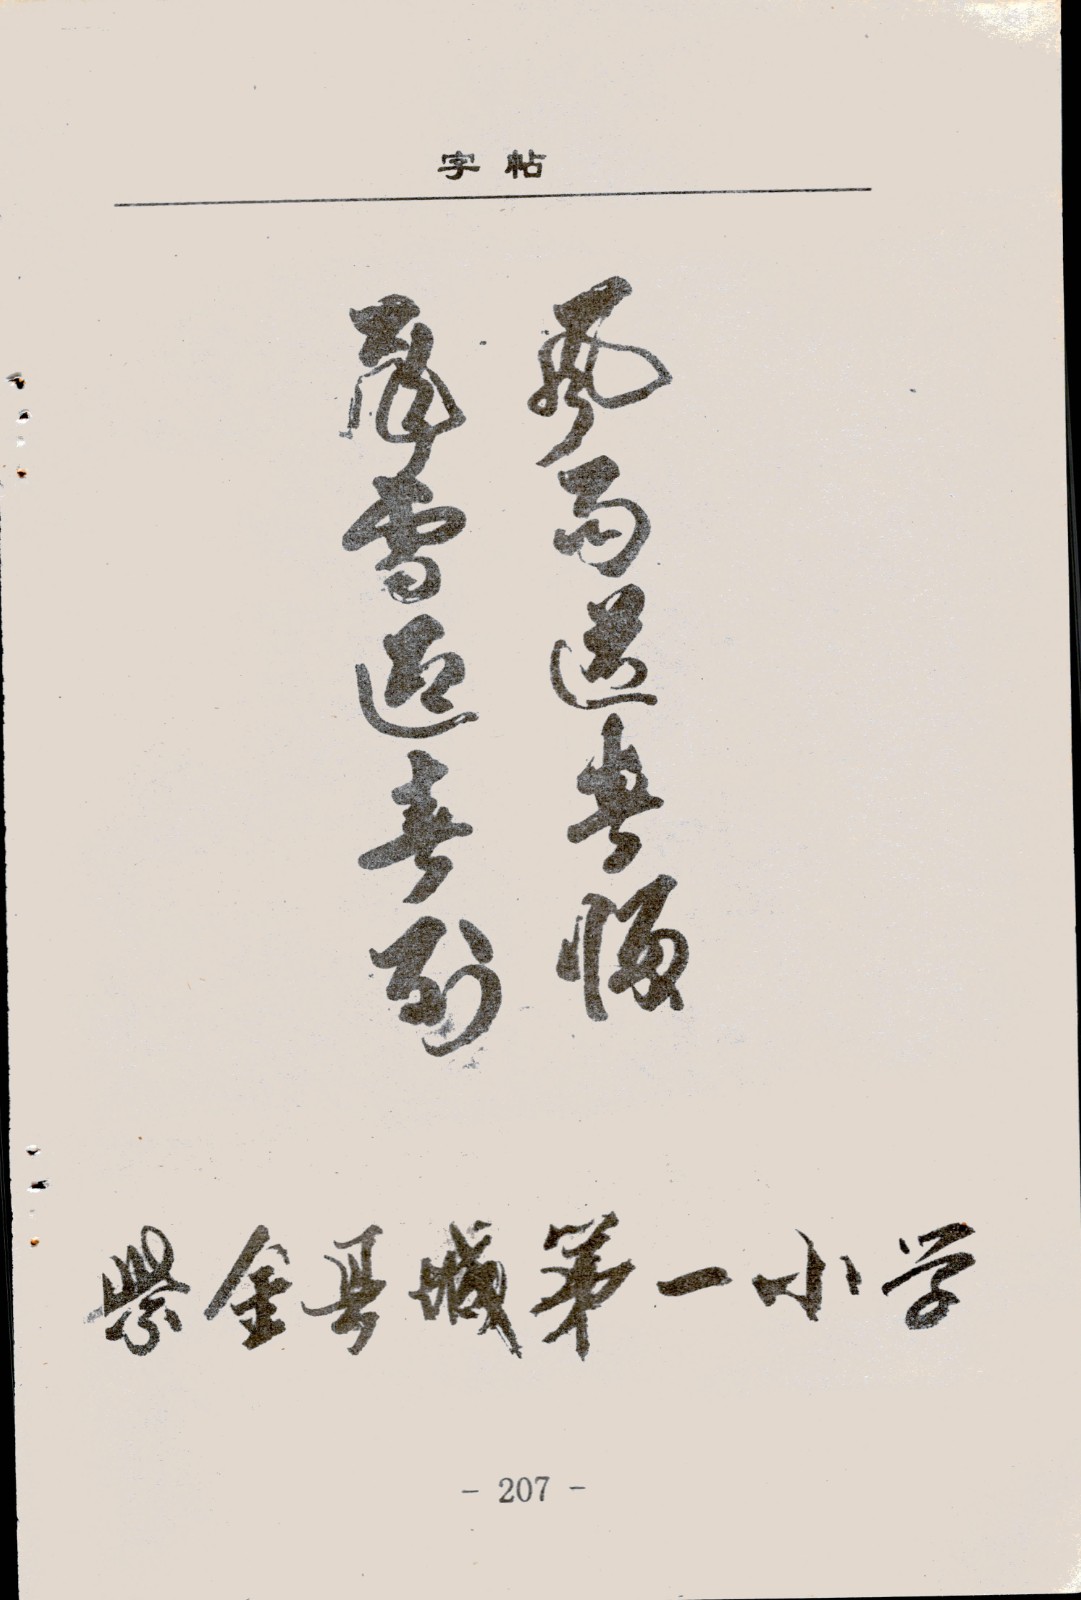 字帖
风雨送春归
飞雪迎春到
紫金县城第一小学
- 207 -